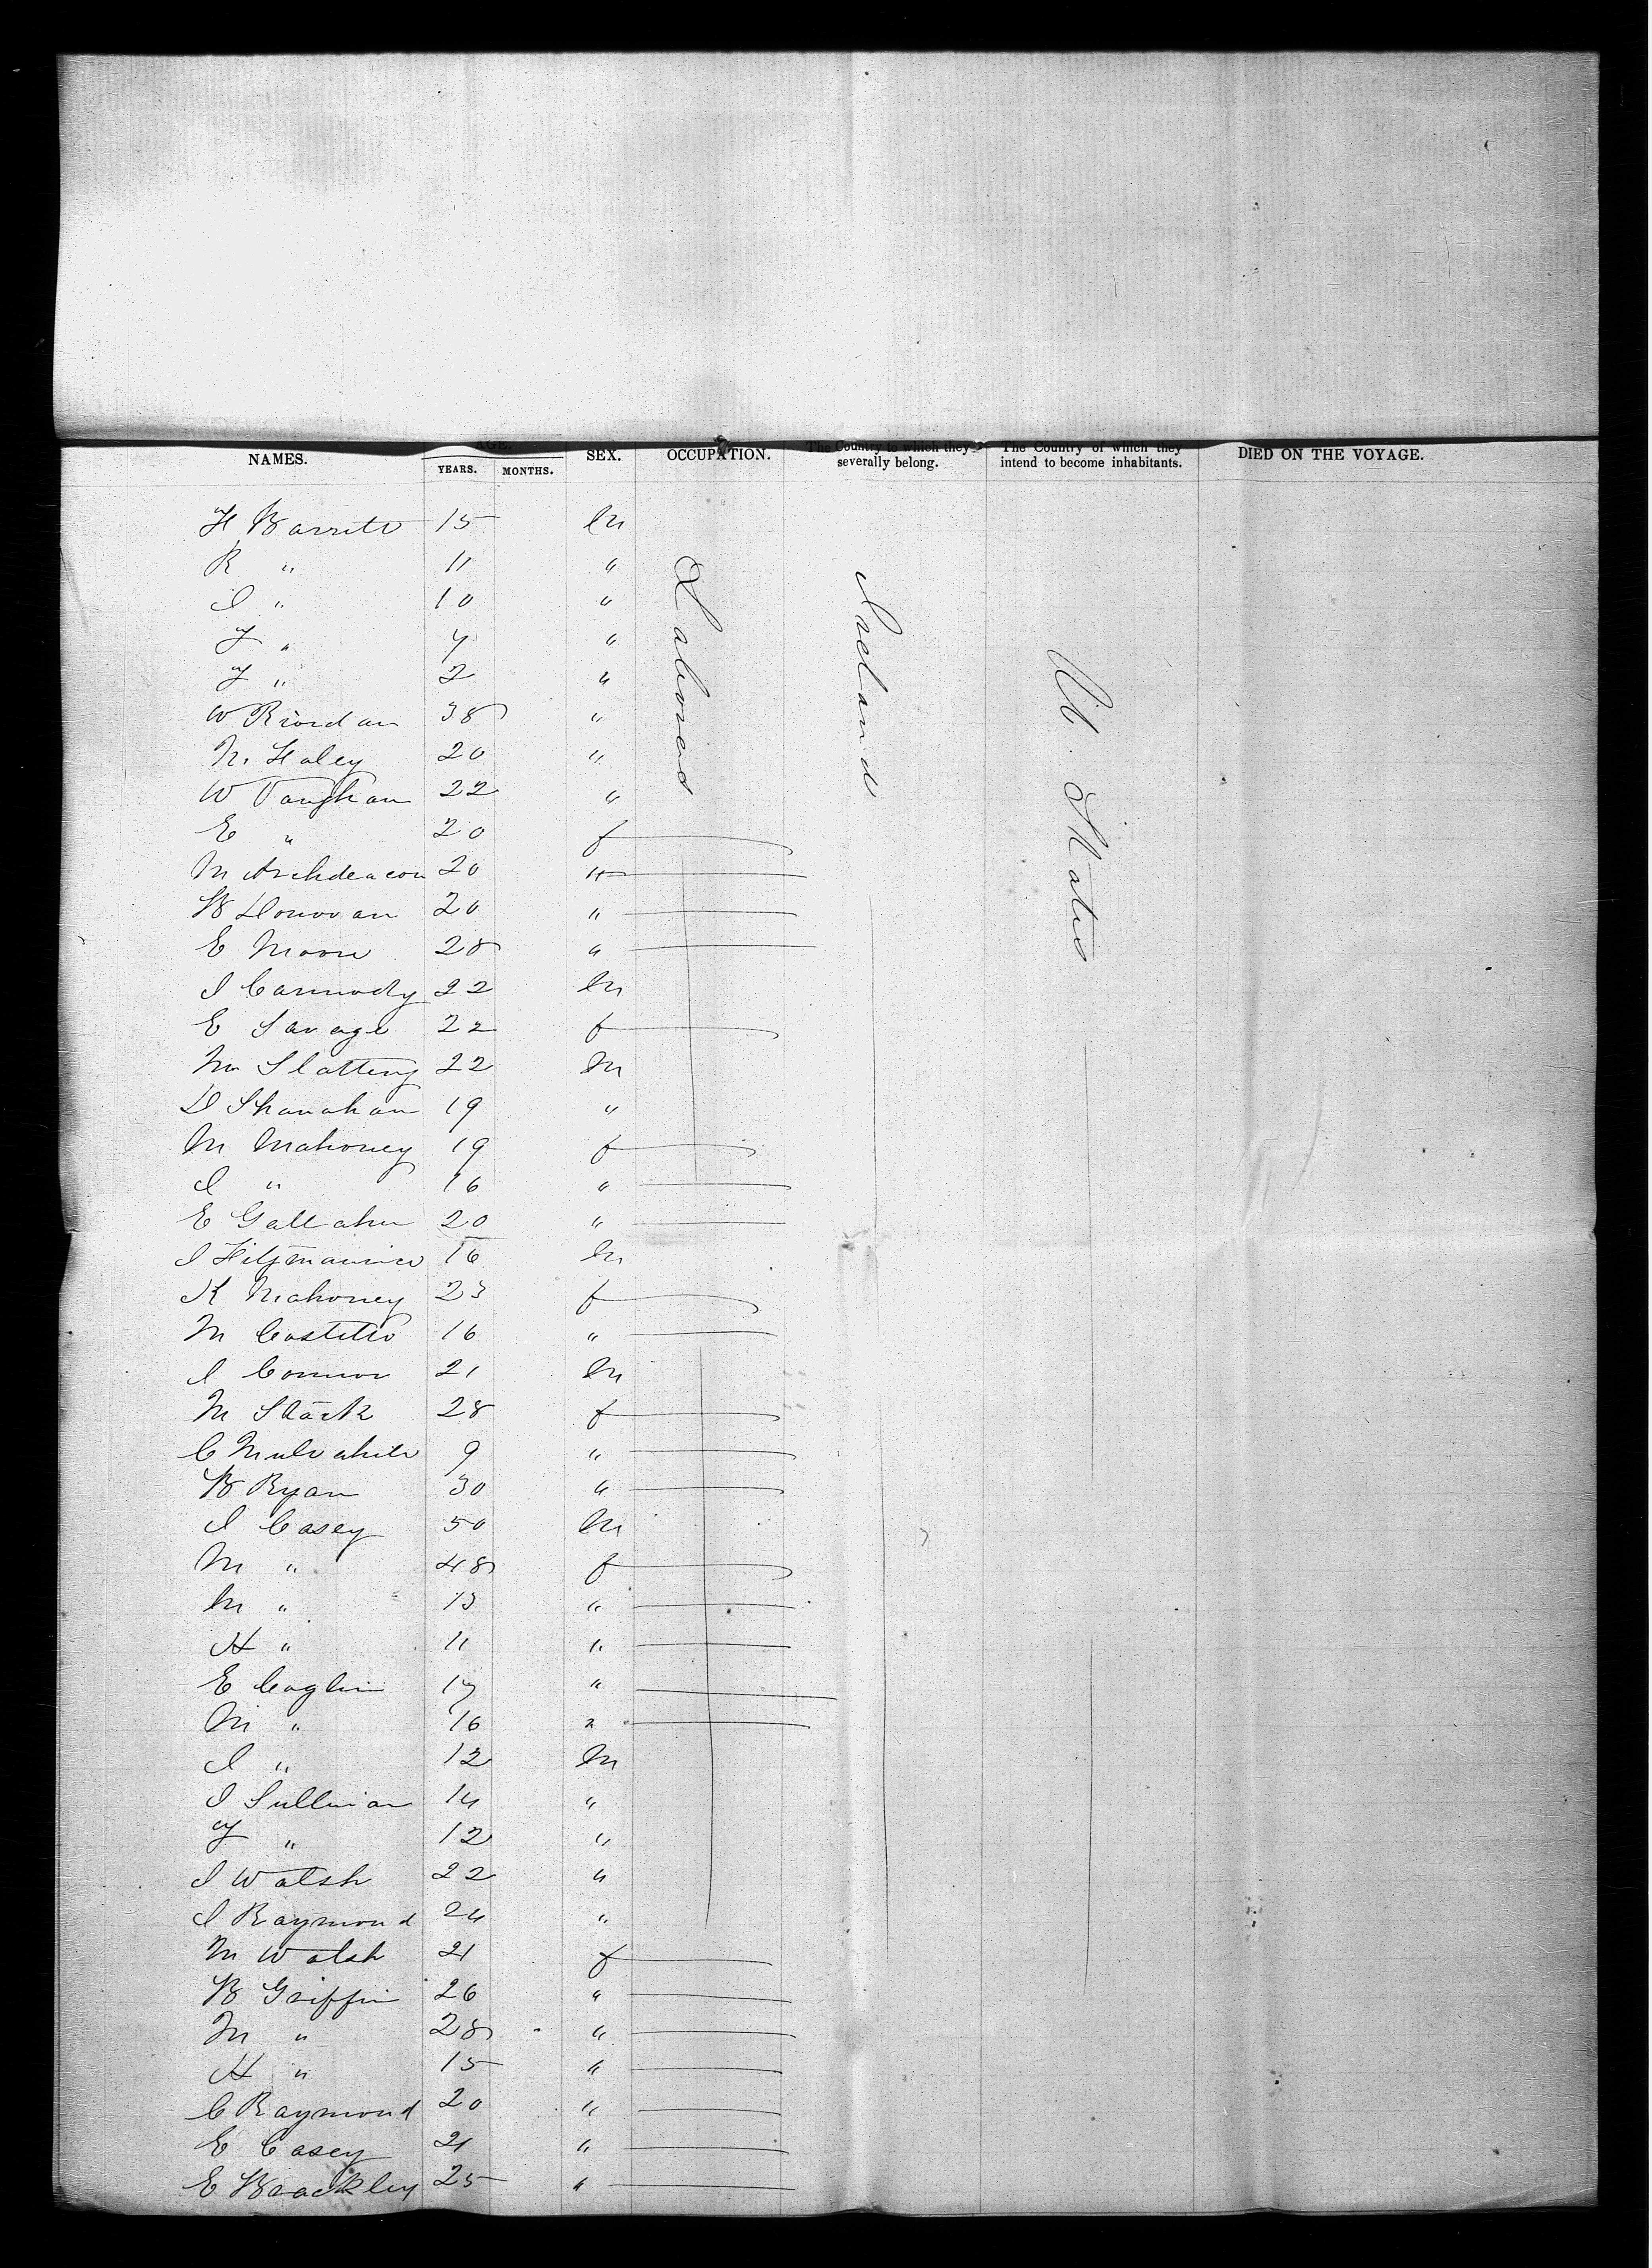 NAMES. AGE. YEARS. MONTHS. SEX. OCCUPATION. The Country to which they severally belong. The Country of which they intend to become inhabitants. DIED ON THE VOYAGE.
Labourers
Ireland
U. States
H Barrett 15 M
R " 11 "
J " 10 "
T " 7 "
T " 2 "
W Riordan 38 "
M. Haley 20 "
W Vaughan 22 "
E " 20 f
M Archdeacon 20 "
B Donovan 20 "
E Moore 28 "
J Carmody 22 M
E Savage 22 f
M Slattery 22 M
D Shanahan 19 "
M Mahoney 19 f
J " 16 "
E Gallaher 20 "
J Fitzmaurice 16 M
K Mahoney 23 f
M Costello 16 "
J Connor 21 M
M Stack 28 f
C 9 "
B Ryan 30 "
J Casey 50 M
M " 48 f
M " 13 "
H " 11 "
E Coglin 17 "
M " 16 "
J " 12 M
J Sullivan 14 "
T " 12 "
J Walsh 22 "
J Raymond 24 "
M Walsh 21 f
B Griffin 26 "
M " 28 "
H " 15 "
C Raymond 20 "
E Casey 21 "
E Brackley 25 "